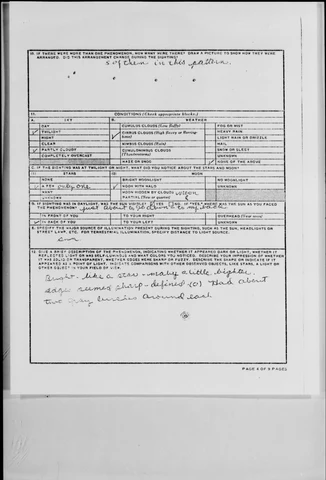 IF THERE WERE MORE THAN ONE PHENOMENON, HOW MANY WERE THERE? DRAW A PICTURE TO SHOW HOW THEY WERE ARRANGED. DID THIS ARRANGEMENT CHANGE DURING THE SIGHTING?
5 of them in this pattern
CONDITIONS (Check appropriate blocks)
A. SKY
B. WEATHER
DAY
CUMULUS CLOUDS (Low fluffy)
FOG OR MIST
TWILIGHT
CIRRUS CLOUDS (High fleecy or Herring-bone)
HEAVY RAIN
NIGHT
LIGHT RAIN OR DRIZZLE
CLEAR
NIMBUS CLOUDS (Rain)
HAIL
PARTLY CLOUDY
CUMULONIMBUS CLOUDS (Thunderstorms)
SNOW OR SLEET
COMPLETELY OVERCAST
UNKNOWN
HAZE OR SMOG
NONE OF THE ABOVE
C. IF THE SIGHTING WAS AT TWILIGHT OR NIGHT, WHAT DID YOU NOTICE ABOUT THE STARS AND MOON?
(1) STARS
(2) MOON
NONE
BRIGHT MOONLIGHT
NO MOONLIGHT
A FEW only one
MOON WITH HALO
UNKNOWN
MANY
MOON HIDDEN BY CLOUDS
UNKNOWN
PARTIAL (New or quarter)
IF SIGHTING WAS IN DAYLIGHT, WAS THE SUN VISIBLE?
just about to go down to my back
IN FRONT OF YOU
TO YOUR RIGHT
OVERHEAD (Near noon)
IN BACK OF YOU
TO YOUR LEFT
UNKNOWN
SPECIFY THE MAJOR SOURCE OF ILLUMINATION PRESENT DURING THE SIGHTING, SUCH AS THE SUN, HEADLIGHTS OR STREET LAMP, ETC. FOR TERRESTRIAL ILLUMINATION, SPECIFY DISTANCE TO LIGHT SOURCE.
sun
12. GIVE A BRIEF DESCRIPTION OF THE PHENOMENON, INDICATING WHETHER IT APPEARED DARK OR LIGHT, WHETHER IT REFLECTED LIGHT OR WAS SELF-LUMINOUS AND WHAT COLORS YOU NOTICED. DESCRIBE YOUR IMPRESSION OF WHETHER IT WAS SOLID OR TRANSPARENT, WHETHER EDGES WERE SHARP OR FUZZY. DESCRIBE THE SHAPE OR INDICATE IF IT APPEARED AS A POINT OF LIGHT. INDICATE COMPARISONS WITH OTHER OBSERVED OBJECTS, LIKE STARS, A LIGHT OR OTHER OBJECT IN YOUR FIELD OF VIEW.
Bright - like a star - maby a little bigher.
edge seemed sharp - defined (o) Had about
two around each
PAGE 4 OF 9 PAGES